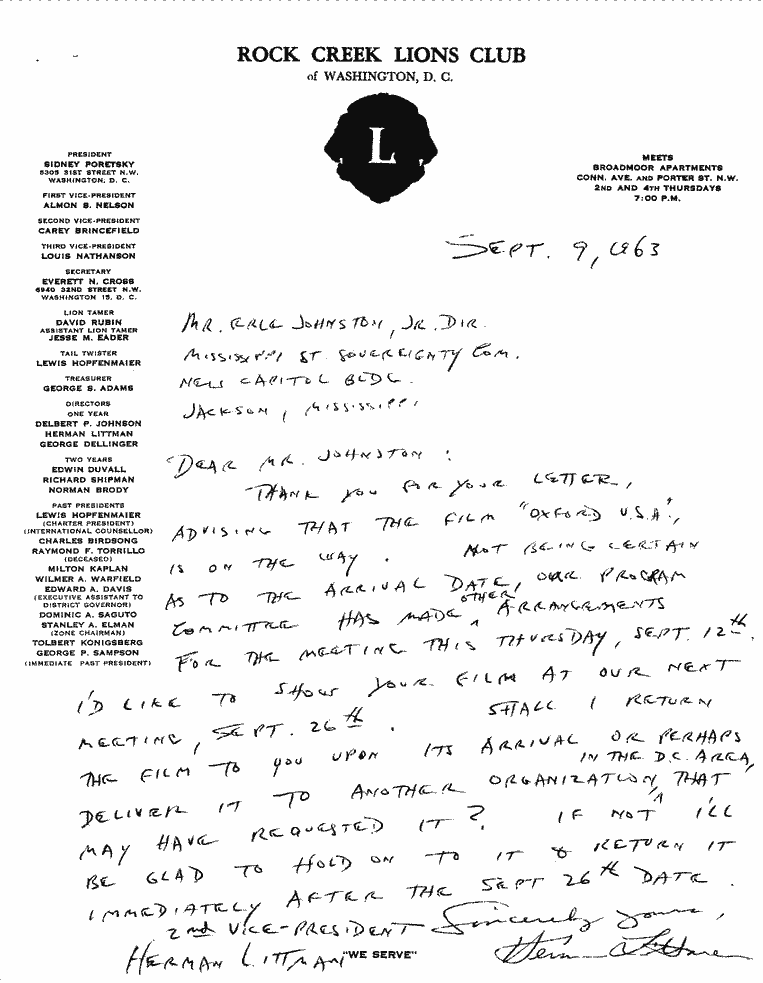 ROCK CREEK LIONS CLUB
of WASHINGTON, D. C.
L
PRESIDENT
SIDNEY PORETSKY
5305 31ST STREET N.W.
WASHINGTON, D. C.
FIRST VICE-PRESIDENT
ALMON S. NELSON
SECOND VICE-PRESIDENT
CAREY BRINCEFIELD
THIRD VICE-PRESIDENT
LOUIS NATHANSON
SECRETARY
EVERETT N. CROSS
6940 32ND STREET N.W.
WASHINGTON 15, D. C.
LION TAMER
DAVID RUBIN
ASSISTANT LION TAMER
JESSE M. EADER
TAIL TWISTER
LEWIS HOPFENMAIER
TREASURER
GEORGE S. ADAMS
DIRECTORS
ONE YEAR
DELBERT P. JOHNSON
HERMAN LITTMAN
GEORGE DELLINGER
TWO YEARS
EDWIN DUVALL
RICHARD SHIPMAN
NORMAN BRODY
PAST PRESIDENTS
LEWIS HOPFENMAIER
(CHARTER PRESIDENT)
(INTERNATIONAL COUNSELLOR)
CHARLES BIRDSONG
RAYMOND F. TORRILLO
(DECEASED)
MILTON KAPLAN
WILMER A. WARFIELD
EDWARD A. DAVIS
(EXECUTIVE ASSISTANT TO
DISTRICT GOVERNOR)
DOMINIC A. SAGUTO
STANLEY A. ELMAN
(ZONE CHAIRMAN)
TOLBERT KONIGSBERG
GEORGE P. SAMPSON
(IMMEDIATE PAST PRESIDENT)
MEETS
BROADMOOR APARTMENTS
CONN. AVE. AND PORTER ST. N.W.
2ND AND 4TH THURSDAYS
7:00 P.M.
SEPT. 9, 1963
MR. ERLE JOHNSTON, JR. DIR.
MISSISSIPPI ST. SOVEREIGNTY COM.
NEW CAPITOL BLDG.
JACKSON, MISSISSIPPI
DEAR MR. JOHNSTON:
THANK YOU FOR YOUR LETTER,
ADVISING THAT THE FILM "OXFORD U.S.A.",
IS ON THE WAY. NOT BEING CERTAIN
AS TO THE ARRIVAL DATE, OUR PROGRAM
COMMITTEE HAS MADE OTHER ARRANGEMENTS
FOR THE MEETING THIS THURSDAY, SEPT. 12th.
I'D LIKE TO SHOW YOUR FILM AT OUR NEXT
MEETING, SEPT. 26th. SHALL I RETURN
THE FILM TO YOU UPON ITS ARRIVAL OR PERHAPS
DELIVER IT TO ANOTHER ORGANIZATION, IN THE D.C. AREA, THAT
MAY HAVE REQUESTED IT? IF NOT I'LL
BE GLAD TO HOLD ON TO IT & RETURN IT
IMMEDIATELY AFTER THE SEPT 26th DATE.
Sincerely yours,
2nd VICE-PRESIDENT
Herman Littman
HERMAN LITTMAN
"WE SERVE"